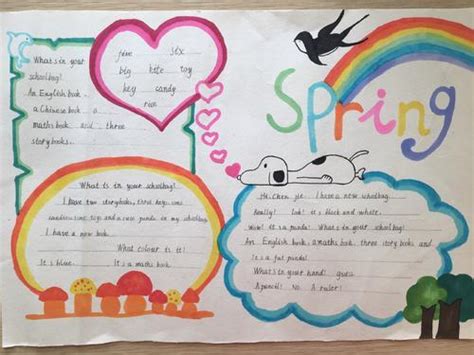 What's in your
schoolbag?
An English book.
a Chinese book a
maths book and three
storybooks.
five six
big bite toy
hey candy
rice
Spring
What is in your schoolbag?
I have two storybooks, three keys, some
toys and a cute panda in my schoolbag
I have a new book
What colour is it?
It is blue. It is a maths book
Hi. Chen Jie. I have a new schoolbag.
Really? Look! It is black and white.
Wow! It is a panda! What's in your schoolbag?
An English book, a maths book three story books and
It is a fat panda!
What's in your hand? guess
A pencil! No. A ruler!